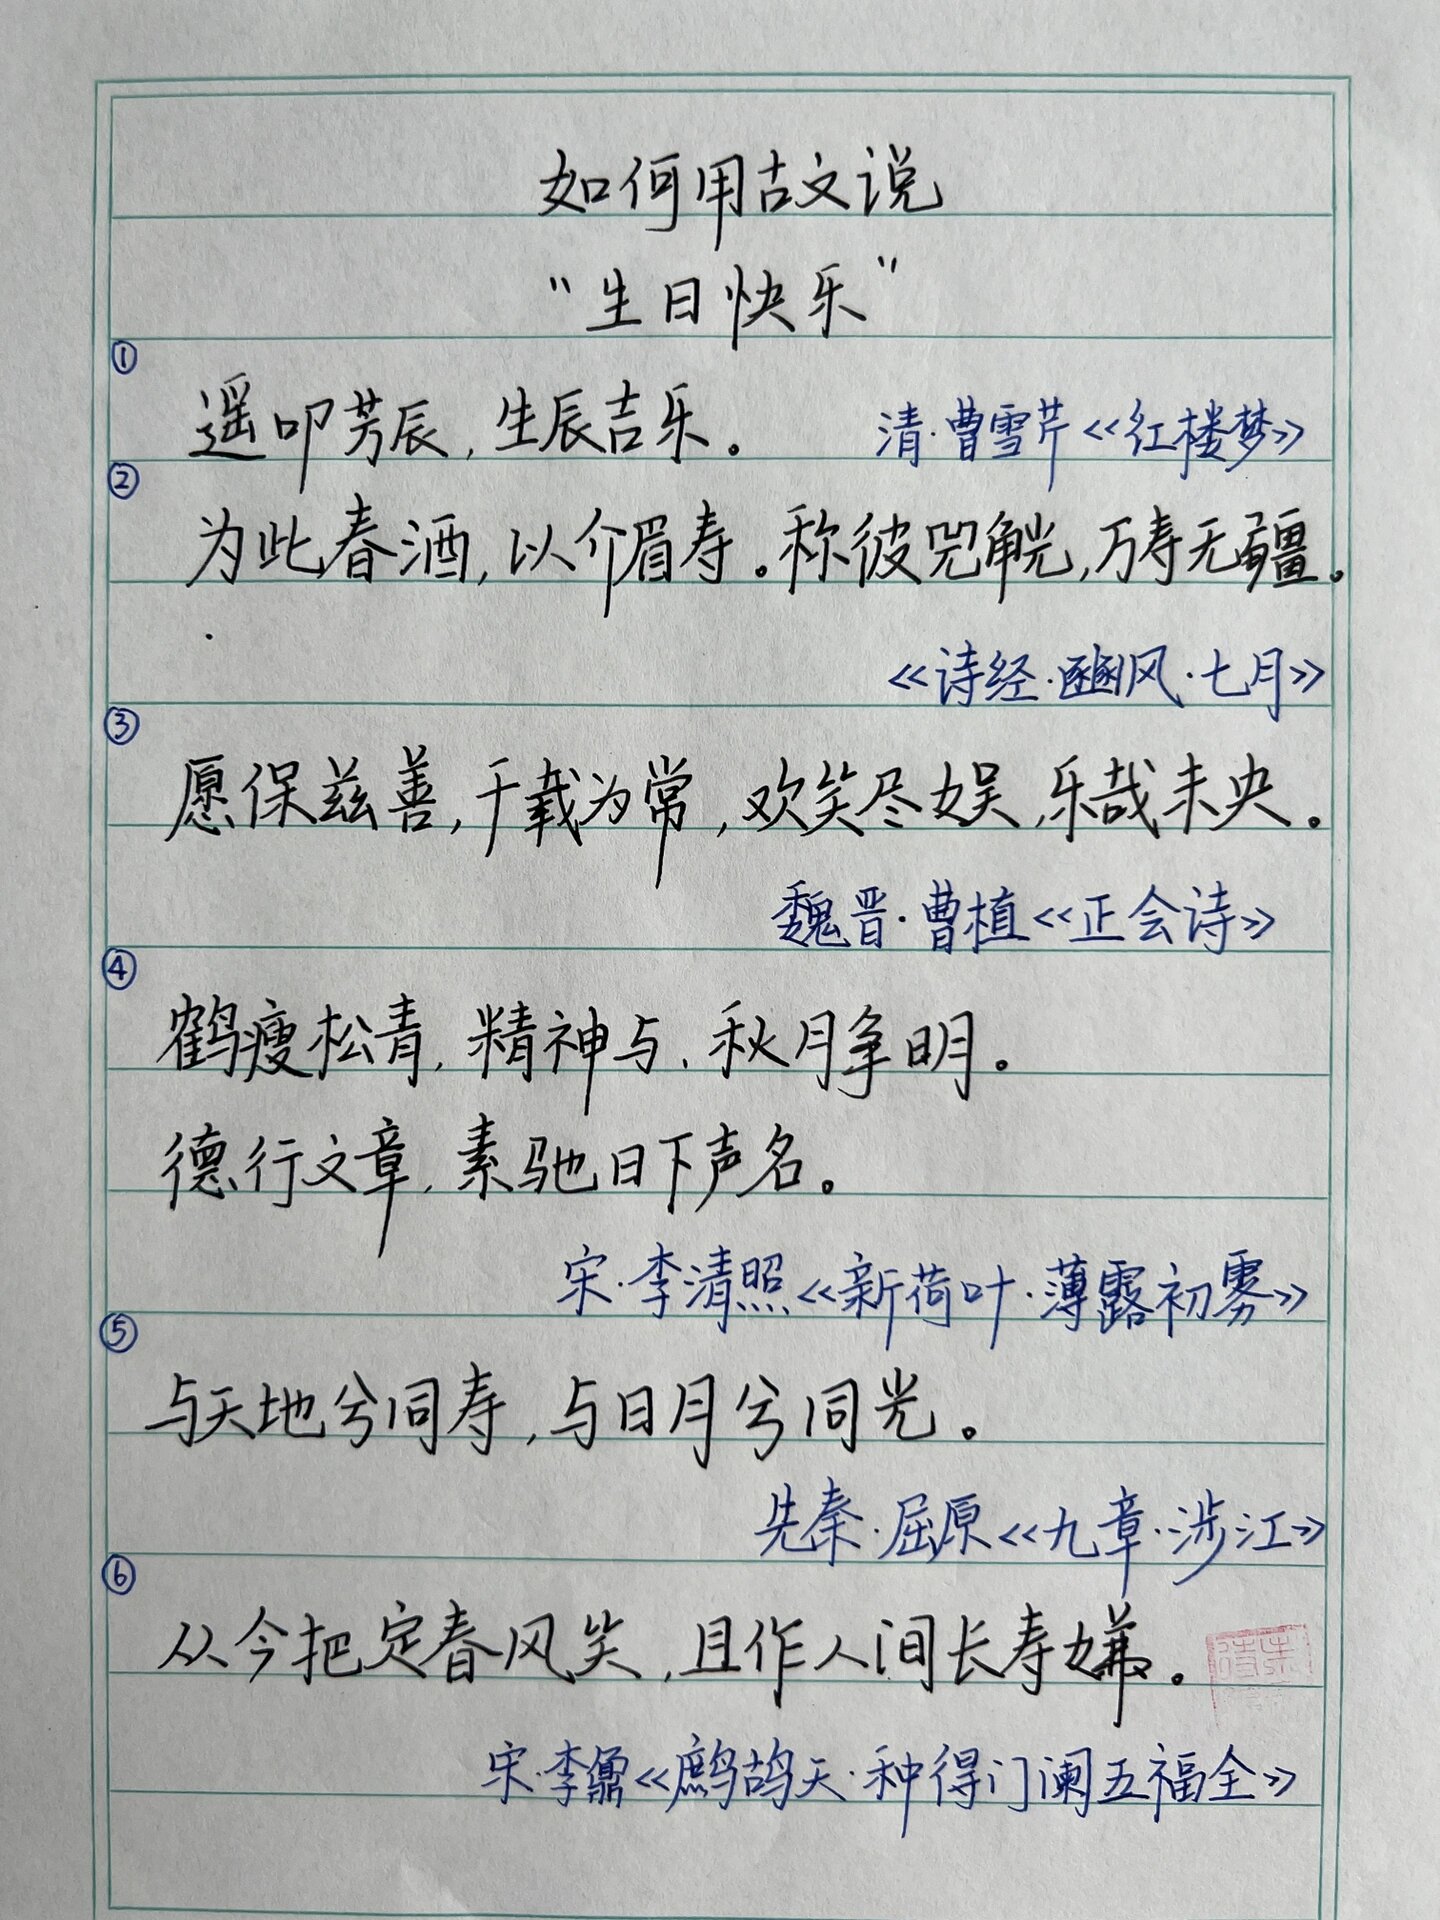 如何用古文说
“生日快乐”
①
遥叩芳辰,生辰吉乐。 清·曹雪芹《红楼梦》
②
为此春酒,以介眉寿。称彼兕觥,万寿无疆。
《诗经·豳风·七月》
③
愿保兹善,千载为常,欢笑尽娱,乐哉未央。
魏晋·曹植《正会诗》
④
鹤瘦松青,精神与、秋月争明。
德行文章,素驰日下声名。
宋·李清照《新荷叶·薄露初零》
⑤
与天地兮同寿,与日月兮同光。
先秦·屈原《九章·涉江》
⑥
从今把定春风笑,且作人间长寿嫌。
宋·李鼐《鹧鸪天·种得门阑五福全》